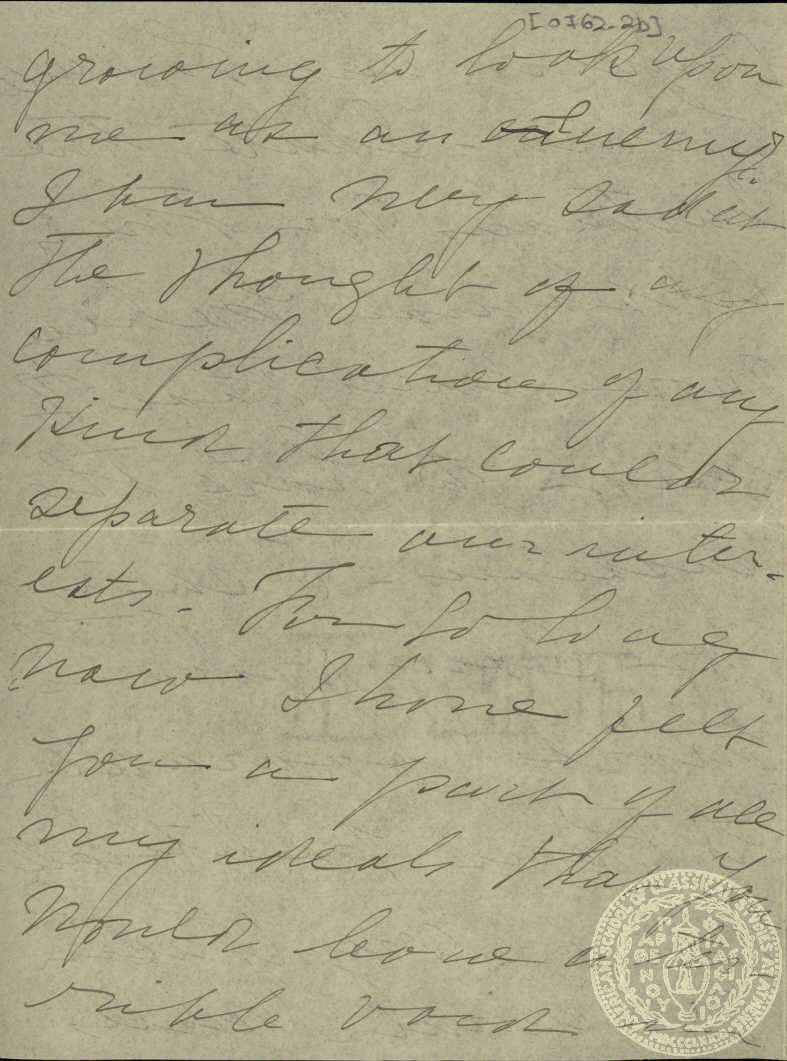 [0762-2b]
growing to look upon
me as an enemy.
I am very sad at
the thought of any
complications of any
kind that could
separate our inter-
ests. For so long
now I have felt
you a part of all
my ideals that you
would leave a ter-
rible void in